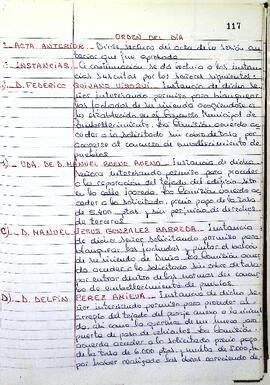 117
ORDEN DEL DIA
- ACTA ANTERIOR.- Dióse lectura del acta de la sesión an-
terior que fue aprobada
- INSTANCIAS.- A continuación se dá lectura a las instancias
suscritas por los señores siguientes:
- D. FEDERICO Instancia de dicho se-
ñor interesando permiso para blanquear
las fachadas de su vivienda acogiendose a
lo establecido en el Municipal de
embellecimiento. La Comisión acuerda ac-
ceder a lo solicitado sin cobro de tasa por
acogerse al concurso de embellecimiento de
pueblos.
- VDA. DE D. MANUEL BUENO Instancia de dicha
señora interesando permiso para proceder
a la reparación del tejado del edificio sito
en la calle La Comisión acuerda ac-
ceder a lo solicitado, previo pago de la tasa
de ptas. y sin perjuicio de derechos
de terceros.
C).- D. MANUEL JESUS GONZALEZ BARREDA.- Instancia
de dicho Señor solicitando permiso para
blanquear las fachadas y pintar el balcón
de su vivienda de La Comisión acuer-
da acceder a lo solicitado sin cobro de tasa
por entrar dentro de las normas del concur-
so de embellecimiento de pueblos.
D).- D. DELFIN PEREZ Instancia de dicho Se-
ñor interesando permiso para proceder al
arreglo del tejado del garaje anexo a la vivien-
da, así como la apertura de un hueco para
puerta de paso de La Comisión
acuerda acceder a lo solicitado previo pago
de la tasa de 6.000 ptas. y multa de 5.000 ptas.
por haber realizado las obras careciendo de